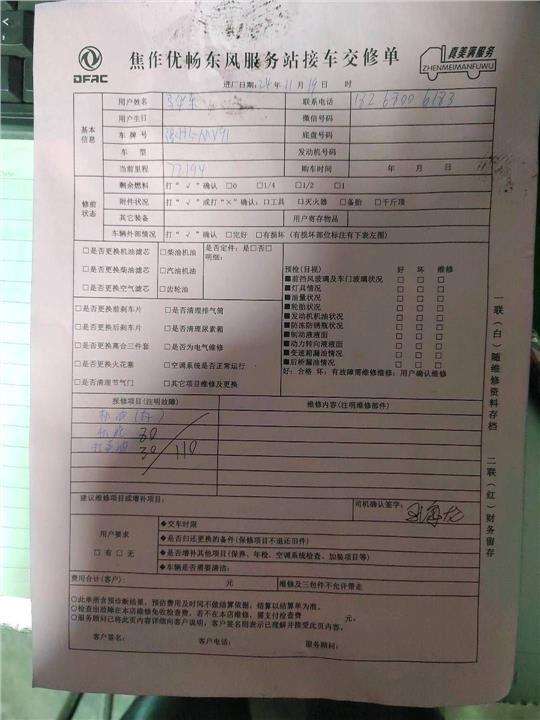 DFAC
焦作优畅东风服务站接车交修单
真美满服务
ZHENMEIMANFUWU
进厂日期：24年11月19日 时
基本信息
用户姓名 联系电话
用户生日 微信号码
车牌号 底盘号码
车型 发动机号码
当前里程 77194 购车时间 年 月 日
修前状态
剩余燃料 打“√”确认 □0 □1/4 □1/2 □1
附件状况 打“√”或打“×”确认：□工具 □灭火器 □备胎 □千斤顶
其它装备 用户寄存物品
车辆外部情况 打“√”确认 □完好 □有损坏（有损坏部位标注有下表左图）
□是否更换机油滤芯 □柴油机油 是否定件：是□否□
明细：
□是否更换柴油滤芯 □汽油机油
□是否更换空气滤芯 □齿轮油
□是否更换前刹车片 □是否清理排气筒
□是否更换后刹车片 □是否清理尿素箱
□是否更换离合三件套 □是否为电气维修
□是否更换火花塞 □空调系统是否正常运行
□是否清理节气门 □其它项目维修及更换
预检（目视） 好 坏 维修
■前挡风玻璃及车门玻璃状况 □ □ □
■灯具情况 □ □ □
■油量状况 □ □ □
■轮胎状况 □ □ □
■发动机机油状况 □ □ □
■防冻防锈瓶状况 □ □ □
■制动液液面 □ □ □
■动力转向液液面 □ □ □
■变速箱漏油情况 □ □ □
■后桥漏油情况 □ □ □
好：合格 坏：有故障需维修维修：用户确认维修
报修项目（注明故障） 维修内容（注明维修部件）
80
30
110
建议维修项目或增补项目：
司机确认签字：
用户要求
□有 □无
◆交车时限
◆是否归还更换的备件（保修项目不退还旧件）
◆是否增补其他项目（保养、年检、空调系统检查、加装项目等）
◆车辆是否需要清洁：
费用合计（客户）： 元 维修及三包件不允许带走
○此单所含预诊断结果，预估费用及时间不做结算依据，结算以结算单为准。
○检查出故障在本店维修免收检查费，若不在本店维修、需支付检查费 元。
○服务顾问已将此页内容详细向客户说明，客户签名则表示已理解并接受此页内容。
客户签名： 客户电话： 服务顾问：
一联（白）随维修资料存档
二联（红）财务留存